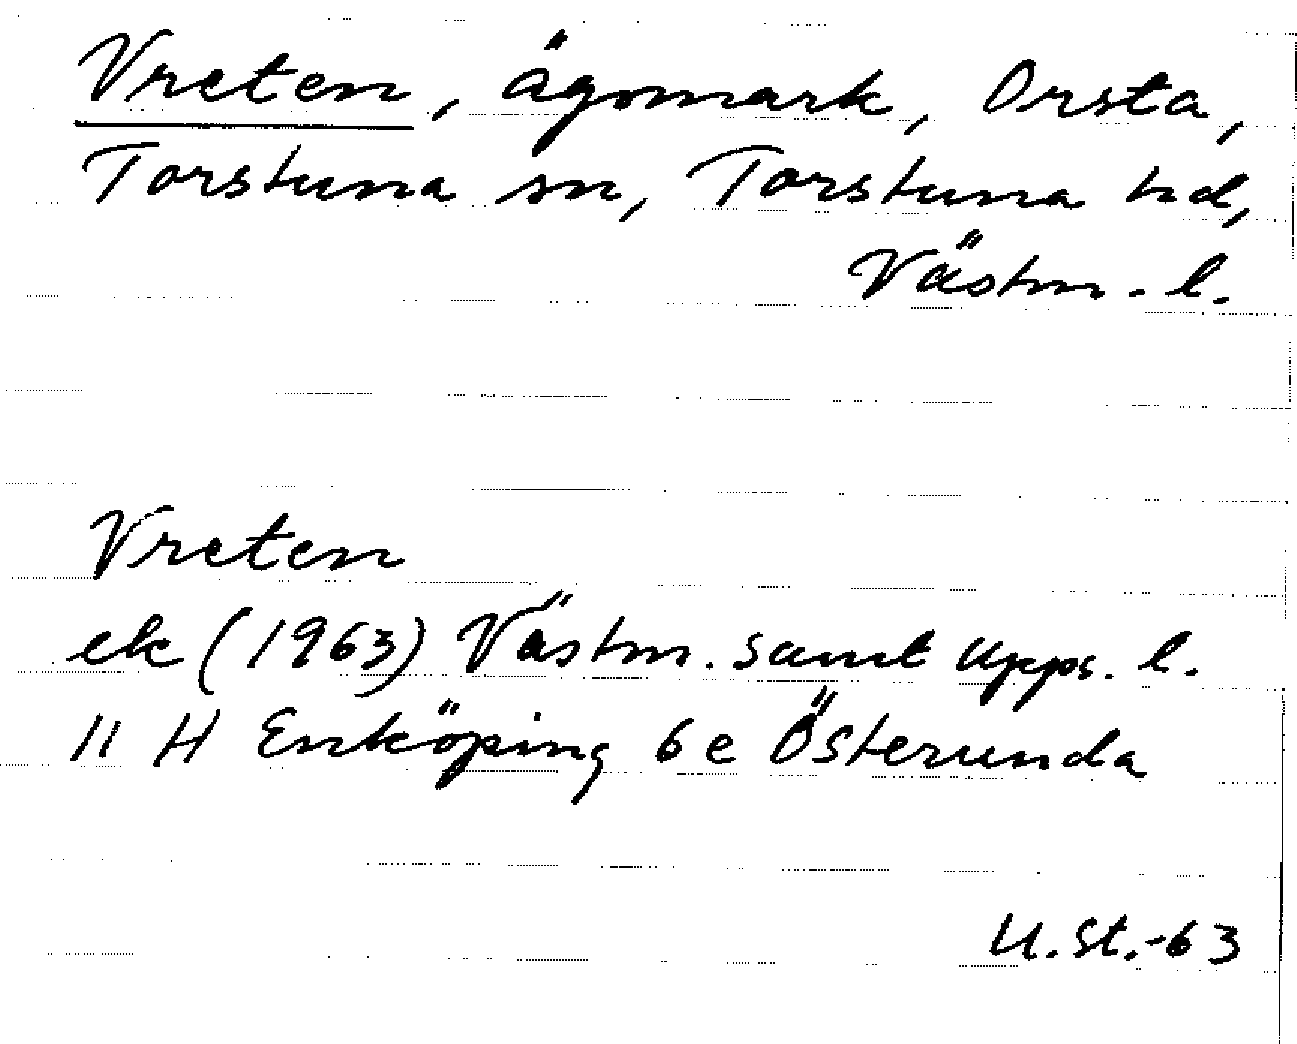 Vreten, ägomark, Orsta,
Torstuna sn, Torstuna hd,
Västm. l.
Vreten
ek (1963) Västm. samt Upps. l.
11 H Enköping 6 e Österunda
U.St.-63